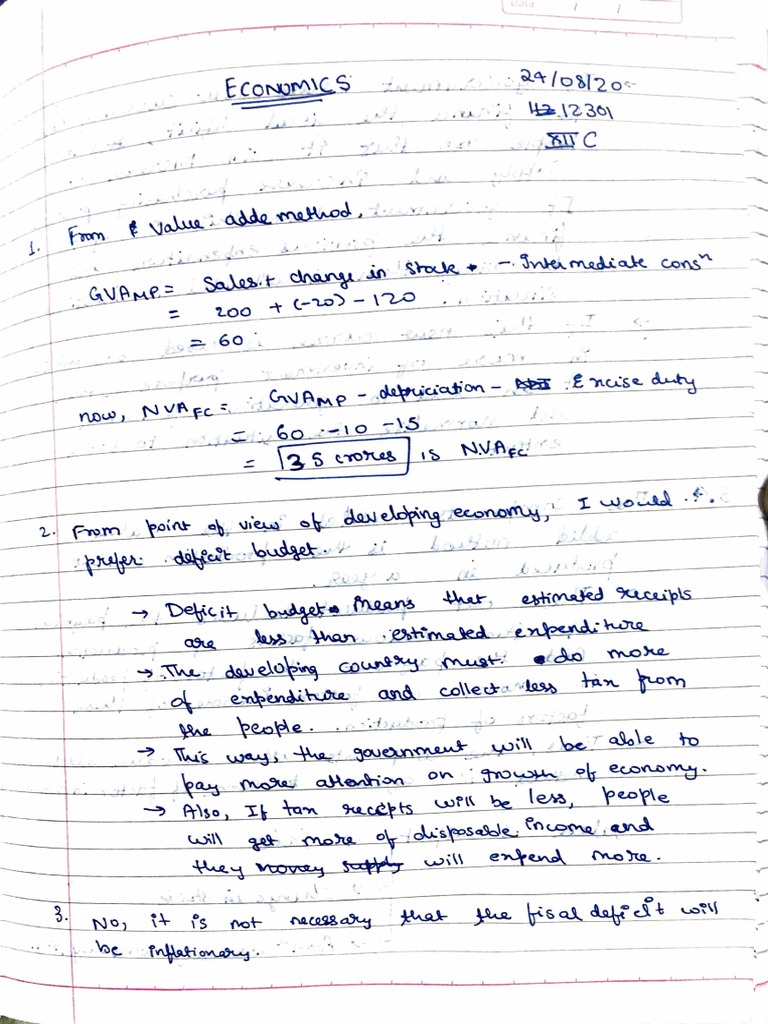 ECONOMICS
24/08/20
12301
XII C
1. From Value adde method,
GVAMP = Sales + change in stock - Intermediate consn
= 200 + (-20) - 120
= 60
now, NVAFC = GVAMP - depriciation - Encise duty
= 60 - 10 - 15
= 35 crores is NVAFC
2. From point of view of developing economy, I would
prefer deficit budget.
→ Deficit budget means that estimated receipts
are less than estimated enpenditure
→ The developing country must do more
of enpenditure and collect less tan from
the people.
→ This way, the government will be able to
pay more attention on growth of economy.
→ Also, If tan receipts will be less, people
will get more of disposable income and
they money supply will enpend more.
3. No, it is not necessary that the fisal deficit will
be inflationary.